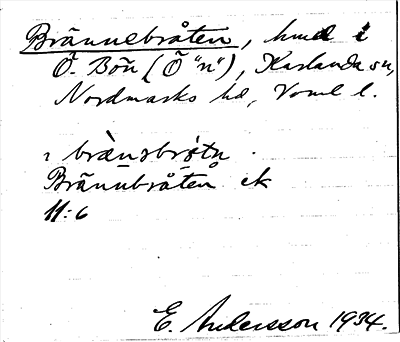 Brännebråten, hmd i
Ö. Bön (Ö "n"), Karlanda sn,
Nordmarks hd, Vrml l.
ı brànǝbrɷ́tn.
Brännbråten ek
11:6
E. Andersson 1934.